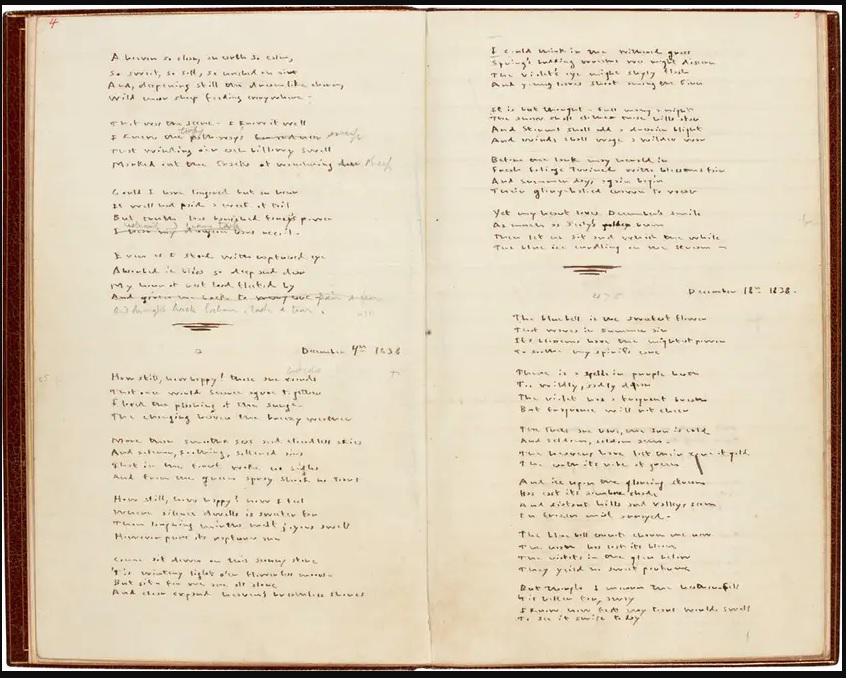 4
A heaven so clear, an earth so calm,
So sweet, so soft, so hushed an air
And, deepening still the dreamlike charm,
Wild moor sheep feeding everywhere -
That was the scene - I knew it well
I knew the pathways
That winding o'er each billowy swell
Marked out the tracks of wandering deer sheep
Could I have lingered but an hour
It well had paid a week of toil
But truth has banished fancy's power
I hear my dungeon bars recoil -
Even as I stood with raptured eye
Absorbed in bliss so deep and dear
My hour of rest had fleeted by
And given me back to
And brought back labour, care.
December 4th 1838
How still, how happy! those are words
That once would scarce agree together
I loved the plashing of the surge -
The changing heaven the breezy weather
More than smooth seas and cloudless skies
And solemn, soothing, softened airs
That in the forest woke no sighs
And from the green spray shook no tears
How still, how happy! now I feel
Where silence dwells is sweeter far
Than laughing mirth's most joyous swell
However pure its raptures are
Come sit down on this sunny stone
'Tis wintry light o'er flowerless moors -
But sit - for we are all alone
And clear expand heaven's breathless shores
5
I could think in the withered grass
Spring's budding wreaths we might discern
The violet's eye might shyly flash
And young leaves shoot among the fern
It is but thought - full many a night
The snow shall clothe those hills afar
And storms shall add a drearier blight
And winds shall wage a wilder war
Before the lark may herald in
Fresh foliage twined with blossoms fair
And summer days again begin
Their glory-haloed crown to wear
Yet my heart loves December's smile
As much as July's golden beam
Then let us sit and watch the while
The blue ice curdling on the stream -
December 18th 1838.
The blue bell is the sweetest flower
That waves in summer air
Its blossoms have the mightiest power
To soothe my spirit's care
There is a spell in purple heath
Too wildly, sadly dear
The violet has a fragrant breath
But fragrance will not cheer
The trees are bare, the sun is cold
And seldom, seldom seen -
The heavens have lost their zone of gold
The earth its robe of green
And ice upon the glancing stream
Has cast its sombre shade
And distant hills and valleys seem
In frozen mist arrayed -
The blue bell cannot charm me now
The heath has lost its bloom
The violets in the glen below
They yield no sweet perfume
But though I mourn the heather-bell
'Tis better far, away
I know how fast my tears would swell
To see it smile today